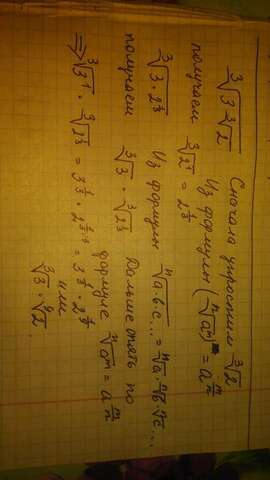 ∛(3∛2) Сначала упростим ∛2
Из формулы (ⁿ√aᵐ = a^(m/n)
получаем ∛2¹ = 2^(1/3)
∛(3·2^(1/3)) Из формулы ⁿ√(a·b·c...) = ⁿ√a·ⁿ√b·ⁿ√c...
получаем ∛3 · ∛(2^(1/3)) Дальше опять по
формуле ⁿ√aᵐ = a^(m/n)
⇒ ∛3¹ · ∛(2^(1/3)) = 3^(1/3) · 2^(1/3·1/3) = 3^(1/3) · 2^(1/9)
или
∛3 · ⁹√2